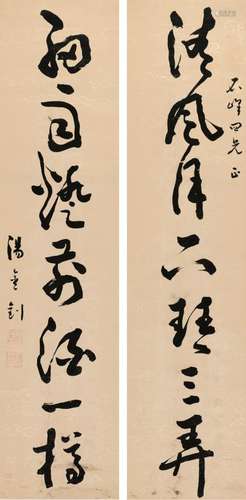 石峰四兄正
清風月下琴三弄
細雨燈前酒一樽
湯金釗